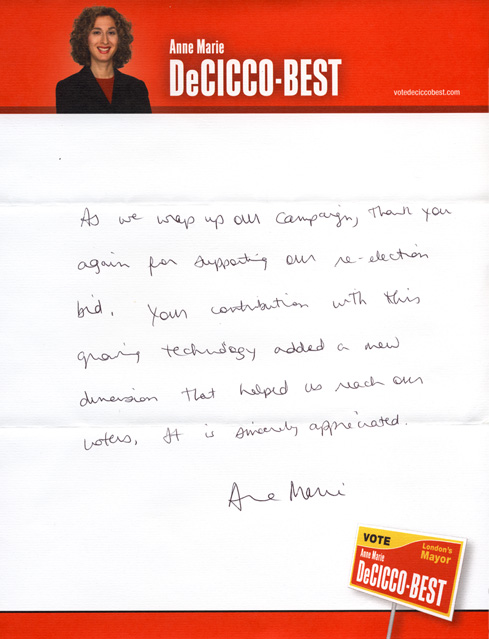 Anne Marie
DeCICCO-BEST
votedeciccobest.com
As we wrap up our campaign, Thank you
again for supporting our re-election
bid. Your contribution with this
growing technology added a new
dimension that helped us reach our
voters. It is sincerely appreciated.
Anne Marie
VOTE
London's
Mayor
Anne Marie
DeCICCO-BEST